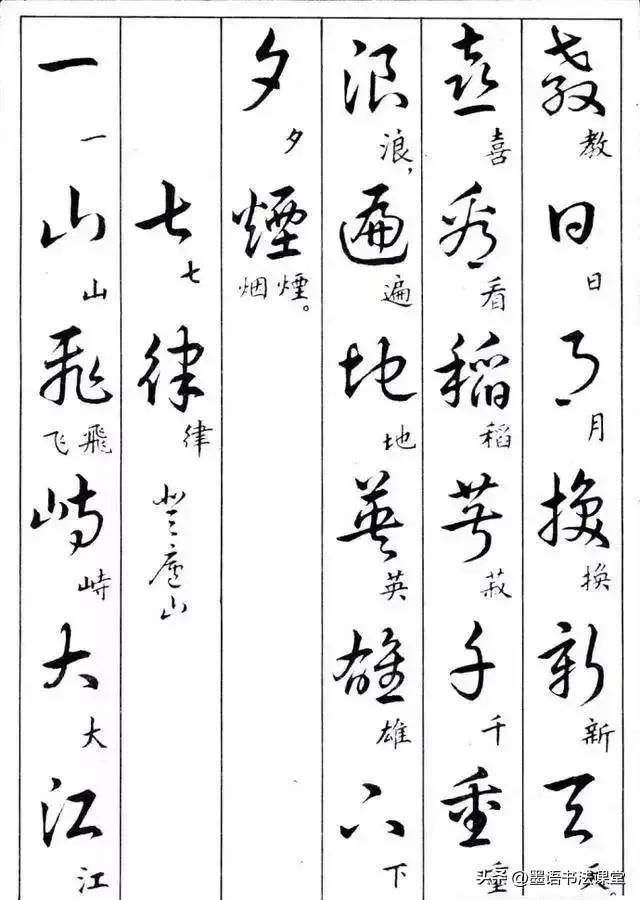 教日月换新天
教日月换新天。
喜看稻菽千重
喜看稻菽千重
浪遍地英雄下
浪，遍地英雄下
夕煙
夕煙。烟
七律
七律
登廬山
一山飛峙大江
一山飛飞峙大江
头条@墨语书法课堂